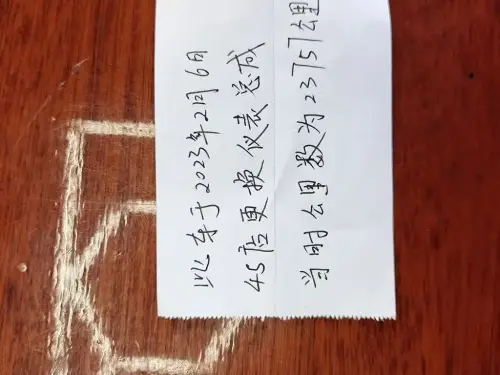 以车于2023年2月6日
4S店更换仪表总成
当时公里数为23757公里